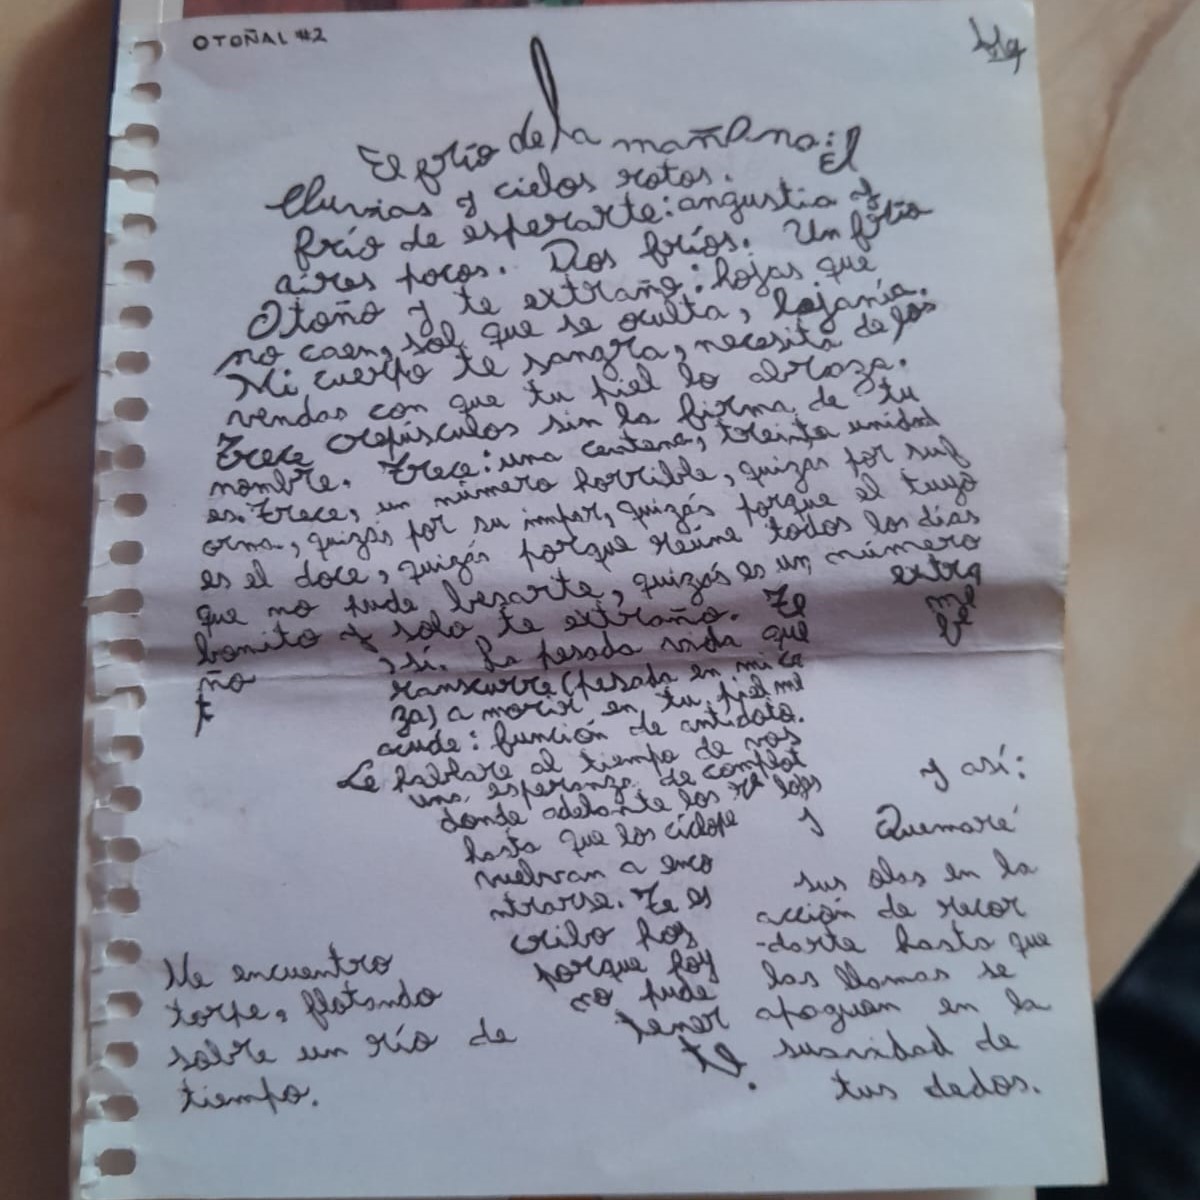 OTOÑAL #2
El frío de la mañana: El
lluvias y cielos rotos.
frío de esperarte: angustia y
aires pocos. Dos fríos. Un frío
Otoño y te extraño: hojas que
no caen, sol que se oculta, lejanía.
Mi cuerpo te sangra, necesita de las
vendas con que tu piel lo abraza.
Trece crepúsculos sin la firma de tu
nombre. Trece: una centena, treinta unidad
es. Trece, un número horrible, quizás por su f
orma, quizás por su impar, quizás porque el tuyo
es el doce, quizás porque reúne todos los días
que no pude besarte, quizás es un número
bonito y solo te extraño. Te extra
ño, sí. La pesada vida que me
t ranscurre (pesada en mi ca be
za) a morir en tu piel me
acude: función de antídoto.
Le hablaré al tiempo de vos
una esperanza de complot
donde adelante los relojes
hasta que los cíclope
vuelvan a enco
ntrarse. Te es
cribo hoy
porque hoy
no pude
tener
te.
Me encuentro
torpe, flotando
sobre un río de
tiempo.
y así:
Quemaré
sus olas en la
acción de recor
-darte hasta que
las llamas se
apaguen en la
suavidad de
tus dedos.